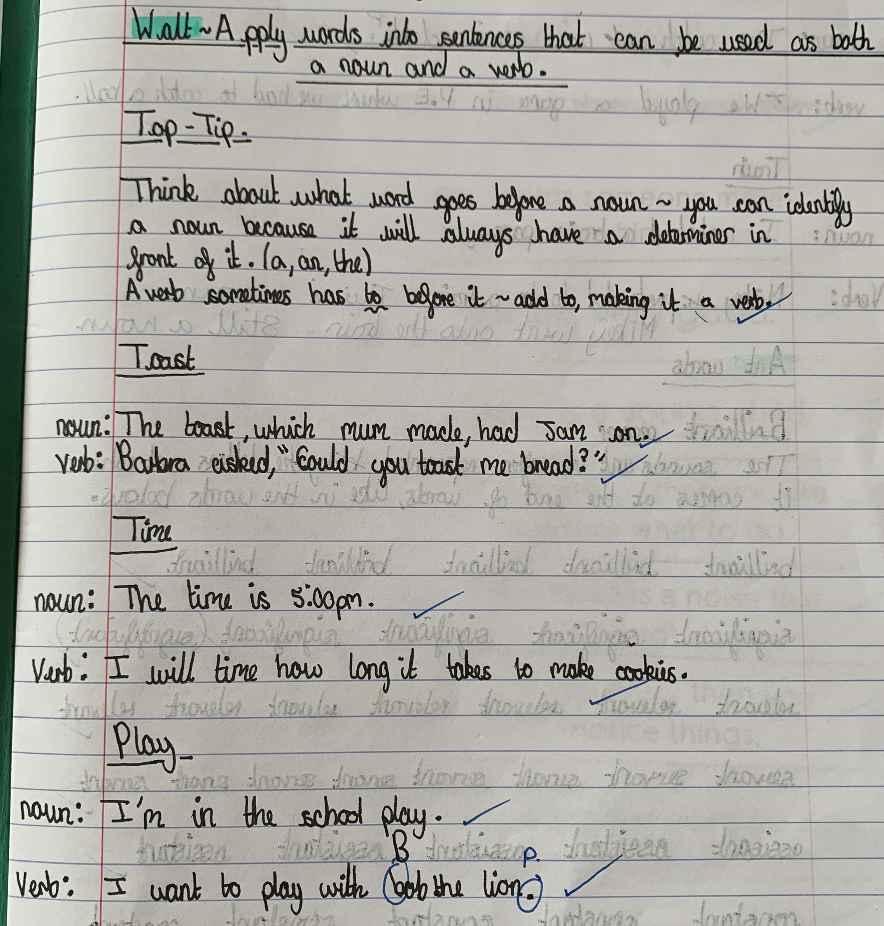 Walt ~ Apply words into sentences that can be used as both
a noun and a verb.
Top-Tip.
Think about what word goes before a noun ~ you can identify
a noun because it will always have a determiner in
front of it. (a, an, the)
A verb sometimes has to before it ~ add to, making it a verb.
Toast
noun: The toast, which mum made, had Jam on.
verb: Barbra asked, "Could you toast me bread?"
Time
noun: The time is 5:00pm.
Verb: I will time how long it takes to make cookies.
Play
noun: I'm in the school play.
B P.
Verb: I want to play with bob the lion.